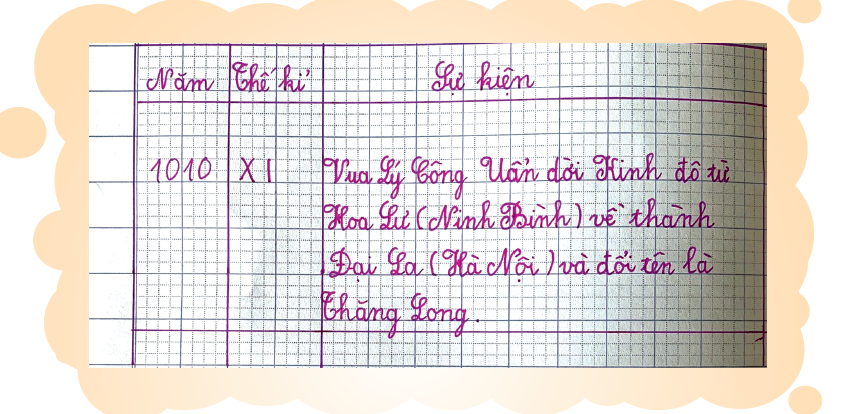 Năm Thế kỉ Sự kiện
1010 XI Vua Lý Công Uẩn dời Kinh đô từ
Hoa Lư (Ninh Bình) về thành
Đại La (Hà Nội) và đổi tên là
Thăng Long.